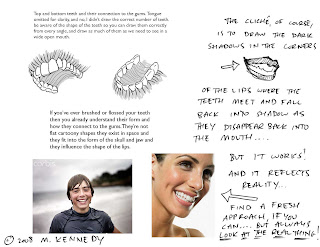 Top and bottom teeth and their connection to the gums. Tongue
omitted for clarity and no, I didn't draw the correct number of teeth.
be aware of the shape of the teeth so you can draw them correctly
from every angle, and draw as much of them as we need to see in a
wide open mouth.
If you've ever brushed or flossed your teeth
then you already understand their form and
how they connect to the gums. They're not
flat cartoony shapes they exist in space and
they fit into the form of the skull and jaw and
they influence the shape of the lips.
© 2008 M. KENNEDY
THE CLICHÉ, OF COURSE,
IS TO DRAW THE DARK
SHADOWS IN THE CORNERS
OF THE LIPS WHERE THE
TEETH MEET AND FALL
BACK INTO SHADOW AS
THEY DISAPPEAR BACK INTO
THE MOUTH....
BUT IT WORKS!
AND IT REFLECTS
REALITY...
FIND A FRESH
APPROACH, IF YOU
CAN.... BUT ALWAYS
LOOK AT THE REAL THING!